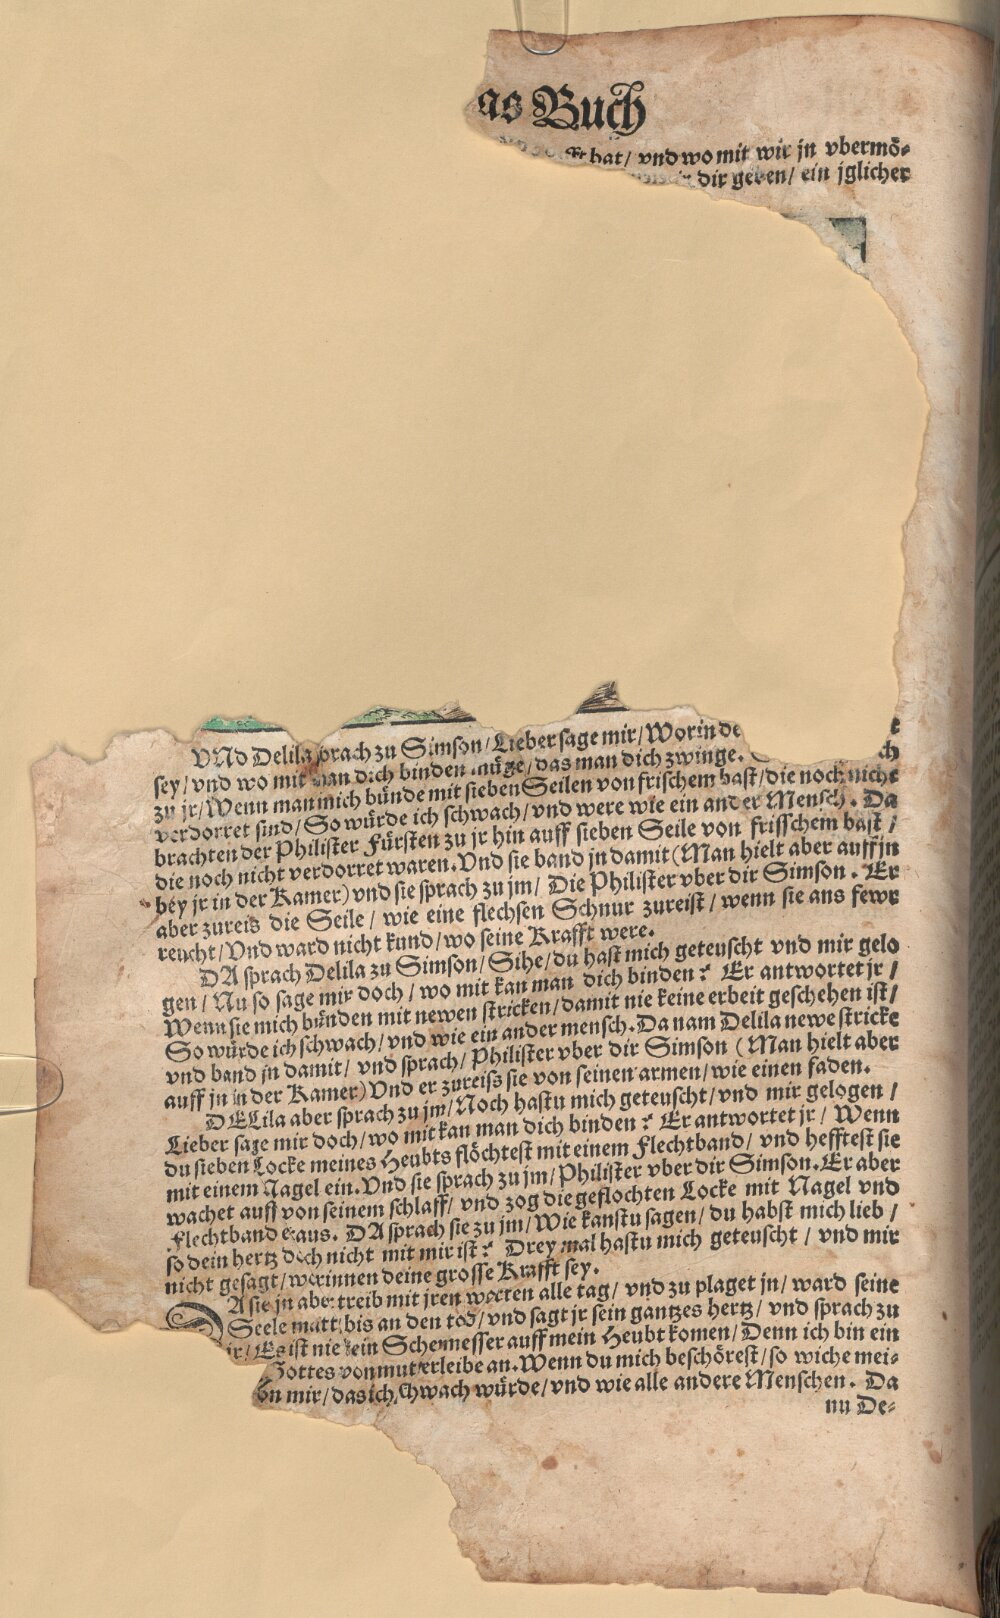 as Buch
hat / vnd wo mit wir jn vbermö⸗
dir geben / ein jglicher
VNd Delila sprach zu Simson / Lieber sage mir / Worin
sey / vnd wo mit man dich binden müge / das man dich zwinge.
zu jr / Wenn man mich bünde mit sieben Seilen von frischem bast / die noch nicht
verdorret sind / So würde ich schwach / vnd were wie ein ander Mensch. Da
brachten der Philister Fürsten zu jr hin auff sieben Seile von frisschem bast /
die noch nicht verdorret waren. Vnd sie band jn damit (Man hielt aber auff jn
bey jr in der Kamer) vnd sie sprach zu jm / Die Philister vber dir Simson. Er
aber zureis die Seile / wie eine flechsen Schnur zureist / wenn sie ans fewr
reucht / Vnd ward nicht kund / wo seine Krafft were.
DA sprach Delila zu Simson / Sihe / du hast mich geteuscht vnd mir gelo
gen / Nu so sage mir doch / wo mit kan man dich binden? Er antwortet jr /
Wenn sie mich bünden mit newen stricken / damit nie keine erbeit geschehen ist /
So würde ich schwach / vnd wie ein ander mensch. Da nam Delila newe stricke
vnd band jn damit / vnd sprach / Philister vber dir Simson (Man hielt aber
auff jn in der Kamer) Vnd er zureiss sie von seinen armen / wie einen faden.
DELila aber sprach zu jm / Noch hastu mich geteuscht / vnd mir gelogen /
Lieber sage mir doch / wo mit kan man dich binden? Er antwortet jr / Wenn
du sieben Locke meines Heubts flöchtest mit einem Flechtband / vnd hefftest sie
mit einem Nagel ein. Vnd sie sprach zu jm / Philister vber dir Simson. Er aber
wachet auff von seinem schlaff / vnd zog die geflochten Locke mit Nagel vnd
Flechtband eraus. DA sprach sie zu jm / Wie kanstu sagen / du habst mich lieb /
so dein hertz doch nicht mit mir ist? Drey mal hastu mich geteuscht / vnd mir
nicht gesagt / worinnen deine grosse Krafft sey.
DA sie jn aber treib mit jren worten alle tag / vnd zu plaget jn / ward seine
Seele matt / bis an den tod / vnd sagt jr sein gantzes hertz / vnd sprach zu
jr / Es ist nie kein Schermesser auff mein Heubt komen / Denn ich bin ein
Gottes von mutterleibe an. Wenn du mich beschörest / so wiche mei⸗
von mir / das ich schwach würde / vnd wie alle andere Menschen. Da
nu De⸗